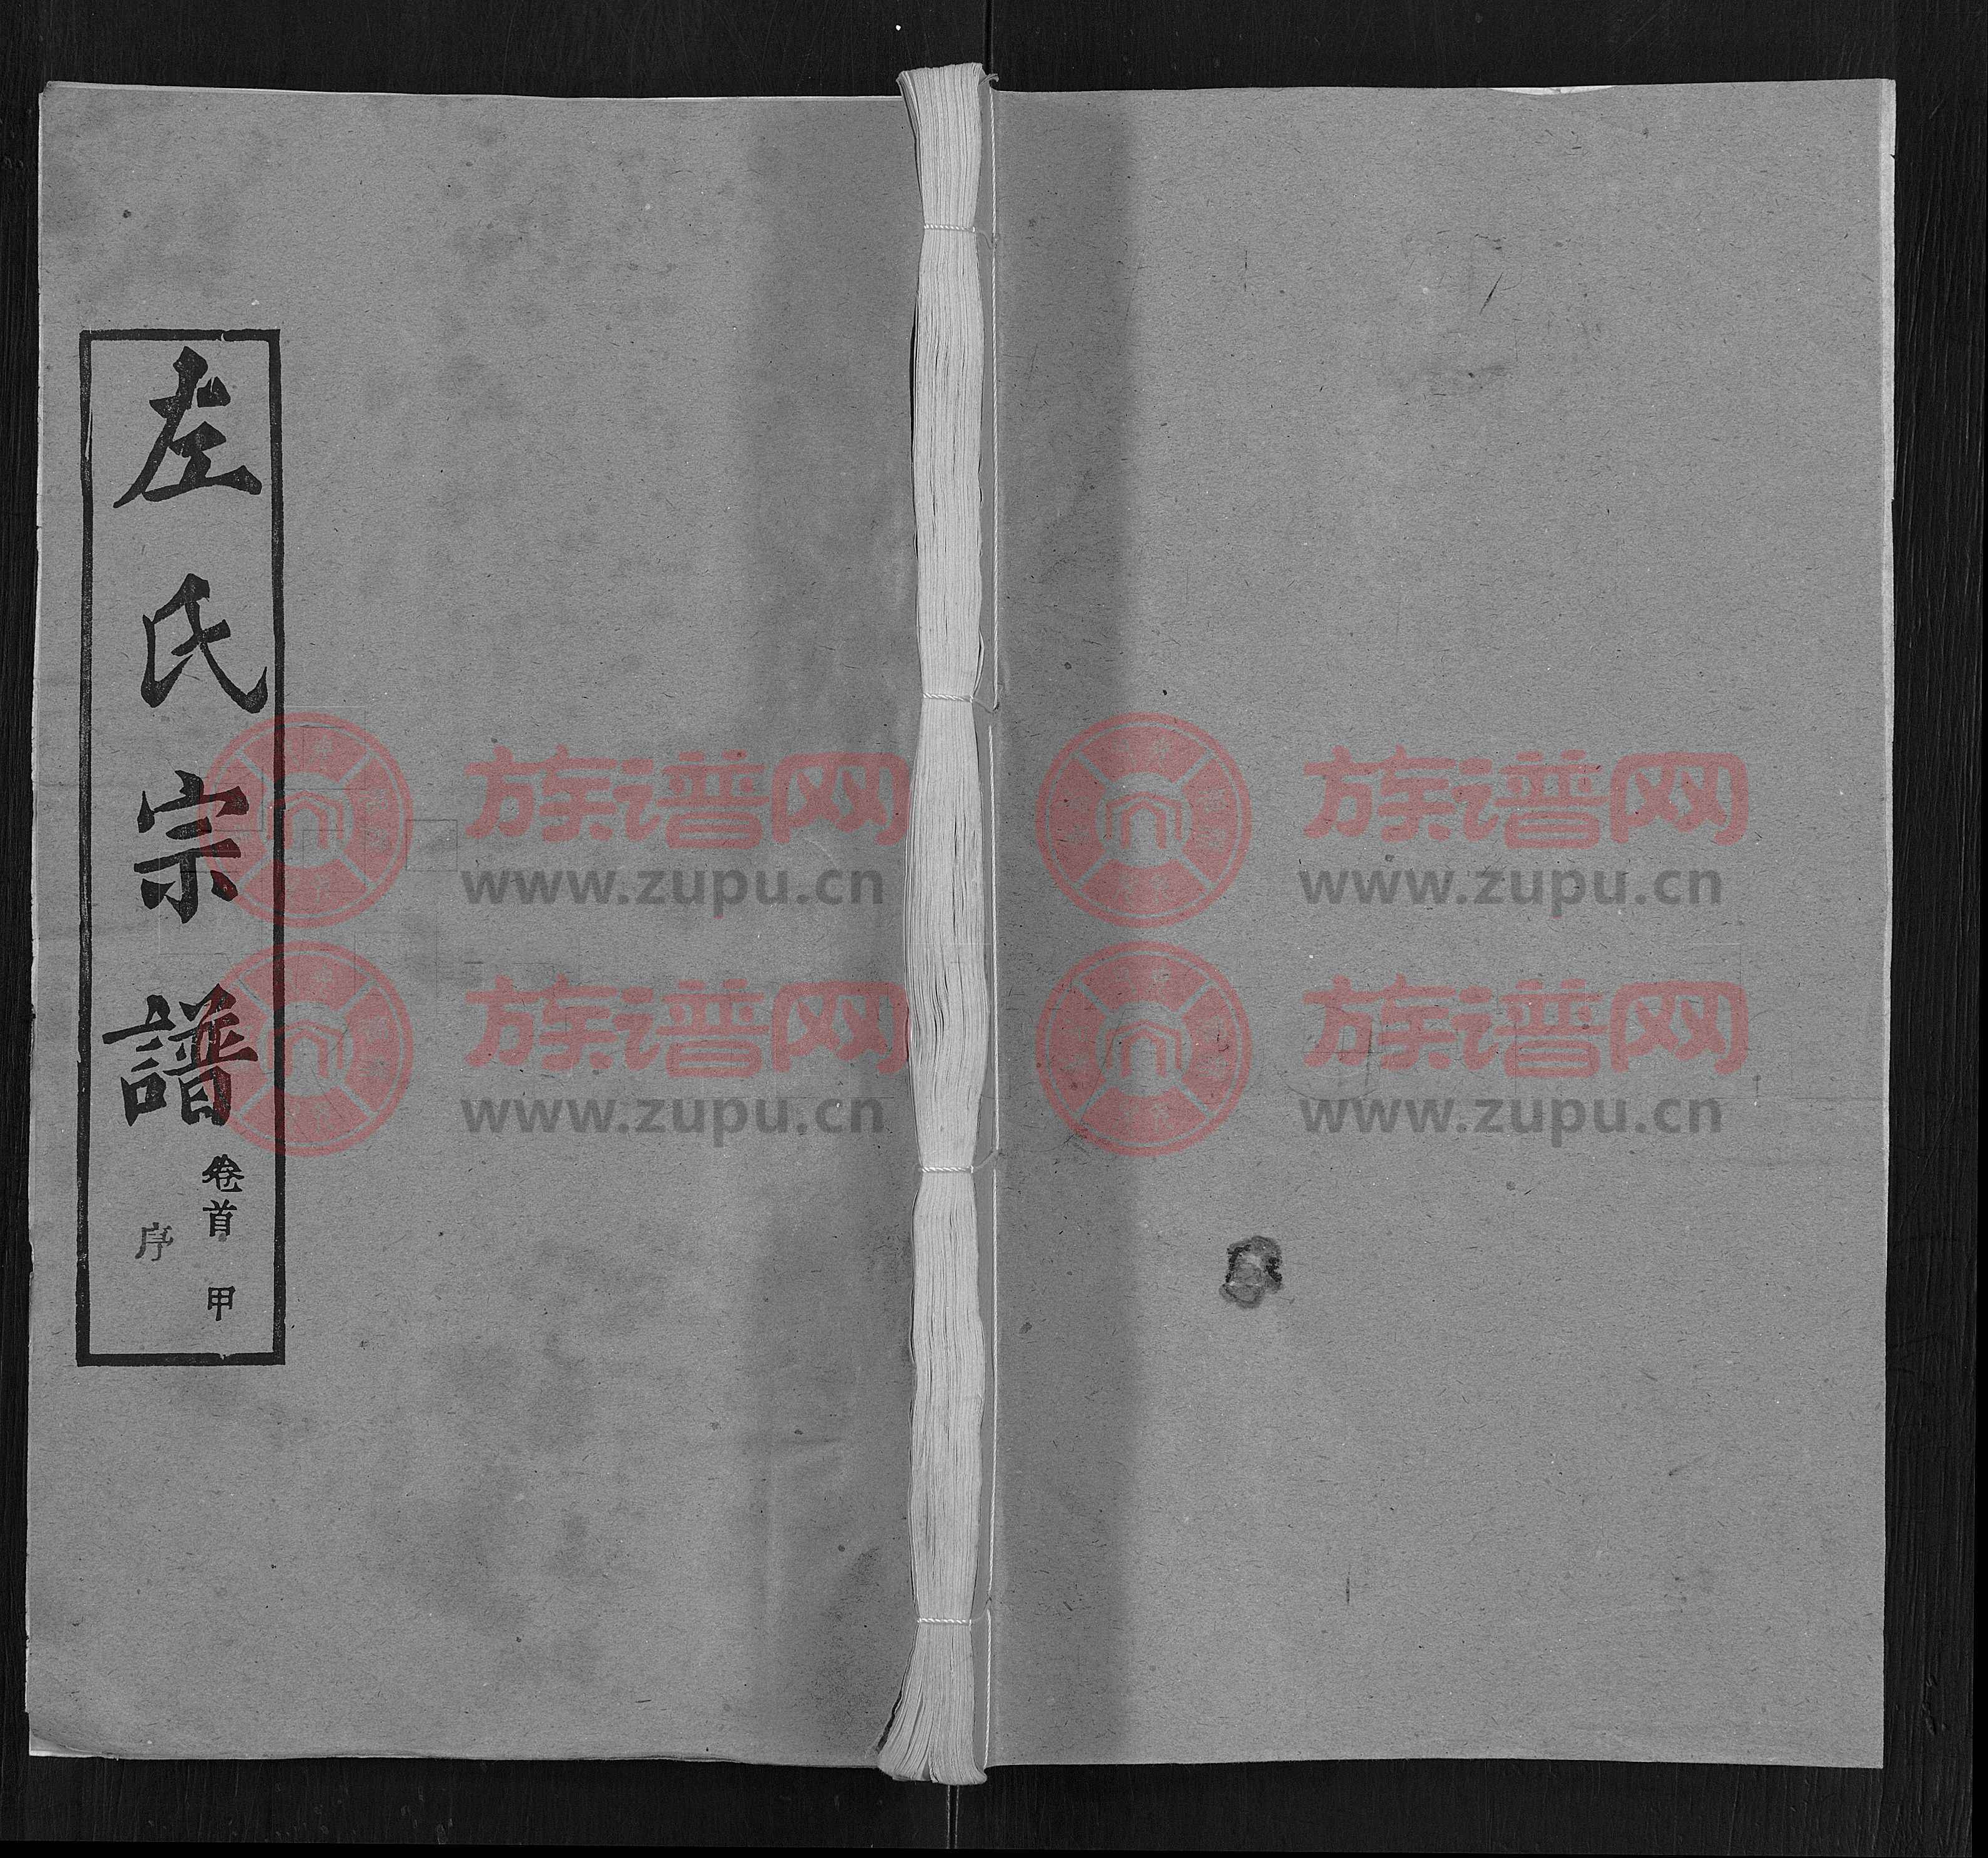 左氏宗譜
卷首 甲
序
族谱网
www.zupu.cn
族谱网
www.zupu.cn
族谱网
www.zupu.cn
族谱网
www.zupu.cn